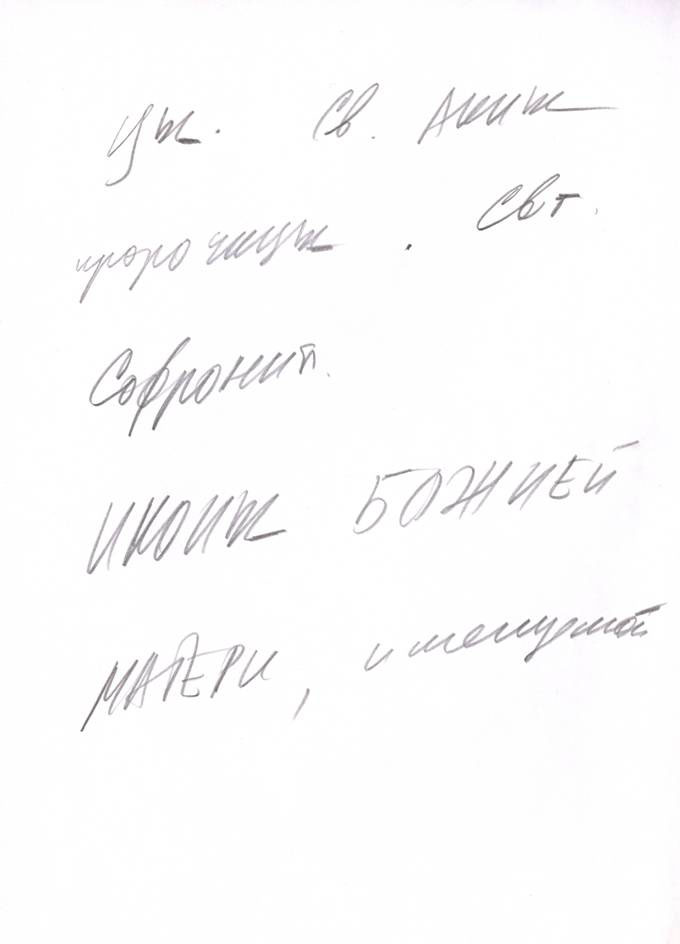 Цы. Св. Анны
пророчицы. Свт.
Софроний.
ИКОНЫ БОЖИЕЙ
МАТЕРИ, именуемой